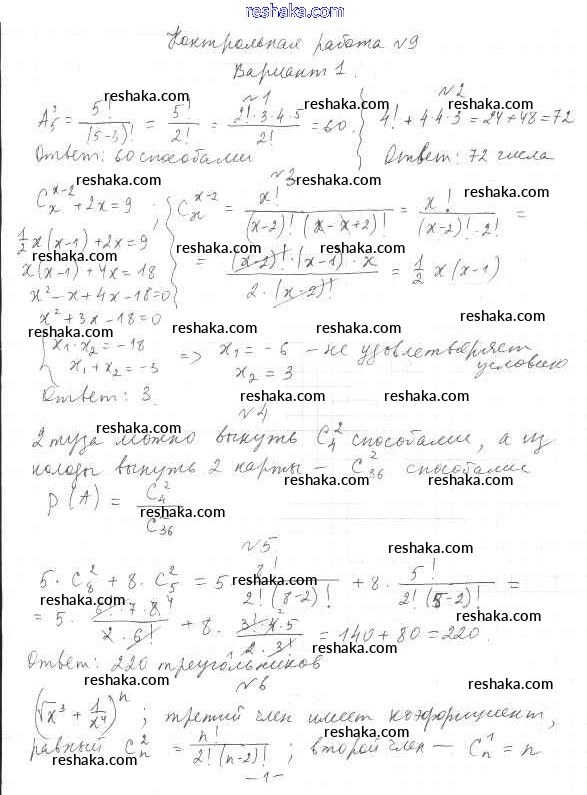 reshaka.com
Контрольная работа №9
Вариант 1.
№1
A₅³ = 5!/(5-3)! = 5!/2! = 2!·3·4·5/2! = 60.
Ответ: 60 способами
№2
4! + 4·4·3 = 24 + 48 = 72
Ответ: 72 числа
№3
Cₓˣ⁻² + 2x = 9 ;
1/2 x(x-1) + 2x = 9
x(x-1) + 4x = 18
x² - x + 4x - 18 = 0
x² + 3x - 18 = 0
Cₓˣ⁻² = x!/((x-2)! (x-x+2)!) = x!/((x-2)!·2!) =
= (x-2)!·(x-1)·x/(2·(x-2)!) = 1/2 x(x-1)
{ x₁·x₂ = -18
x₁ + x₂ = -3
=> x₁ = -6 - не удовлетворяет условию
x₂ = 3
Ответ: 3.
№4
2 туза можно вынуть C₄² способами, а из
колоды вынуть 2 карты - C₃₆² способами
P(A) = C₄²/C₃₆²
№5
5·C₈² + 8·C₅² = 5 8!/(2!(8-2)!) + 8·5!/(2!(5-2)!) =
= 5·6!·7·8⁴/(2·6!) + 8·3!·4·5/(2·3!) = 140 + 80 = 220.
Ответ: 220 треугольников
№6
(√x³ + 1/x⁴)ⁿ ; третий член имеет коэффициент,
равный Cₙ² = n!/(2!(n-2)!) ; второй член - Cₙ¹ = n
-1-